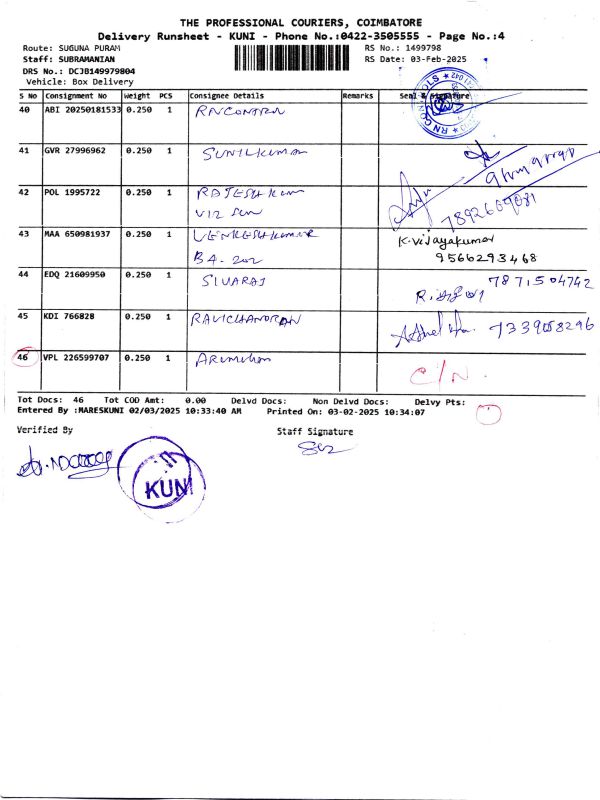 THE PROFESSIONAL COURIERS, COIMBATORE
Delivery Runsheet - KUNI - Phone No.:0422-3505555 - Page No.:4
Route: SUGUNA PURAM RS No.: 1499798
Staff: SUBRAMANIAN RS Date: 03-Feb-2025
DRS No.: DCJB149979804
Vehicle: Box Delivery
S No Consignment No Weight PCS Consignee Details Remarks Seal & Signature
40 ABI 20250181533 0.250 1 RNCONTROL
41 GVR 27996962 0.250 1 SUNILKUMAR
42 POL 1995722 0.250 1 RAJESH KUM
7892609081
43 MAA 650981937 0.250 1 VENKESHKUMAR K.vijayakumar
B4-202 9566293468
44 EDQ 21609950 0.250 1 SIVARAJ 7871504742
45 KDI 766828 0.250 1 RAVICHANDRAN 7339058296
46 VPL 226599707 0.250 1 C/N
Tot Docs: 46 Tot COD Amt: 0.00 Delvd Docs: Non Delvd Docs: Delvy Pts:
Entered By :MARESKUNI 02/03/2025 10:33:40 AM Printed On: 03-02-2025 10:34:07
Verified By Staff Signature
KUNI